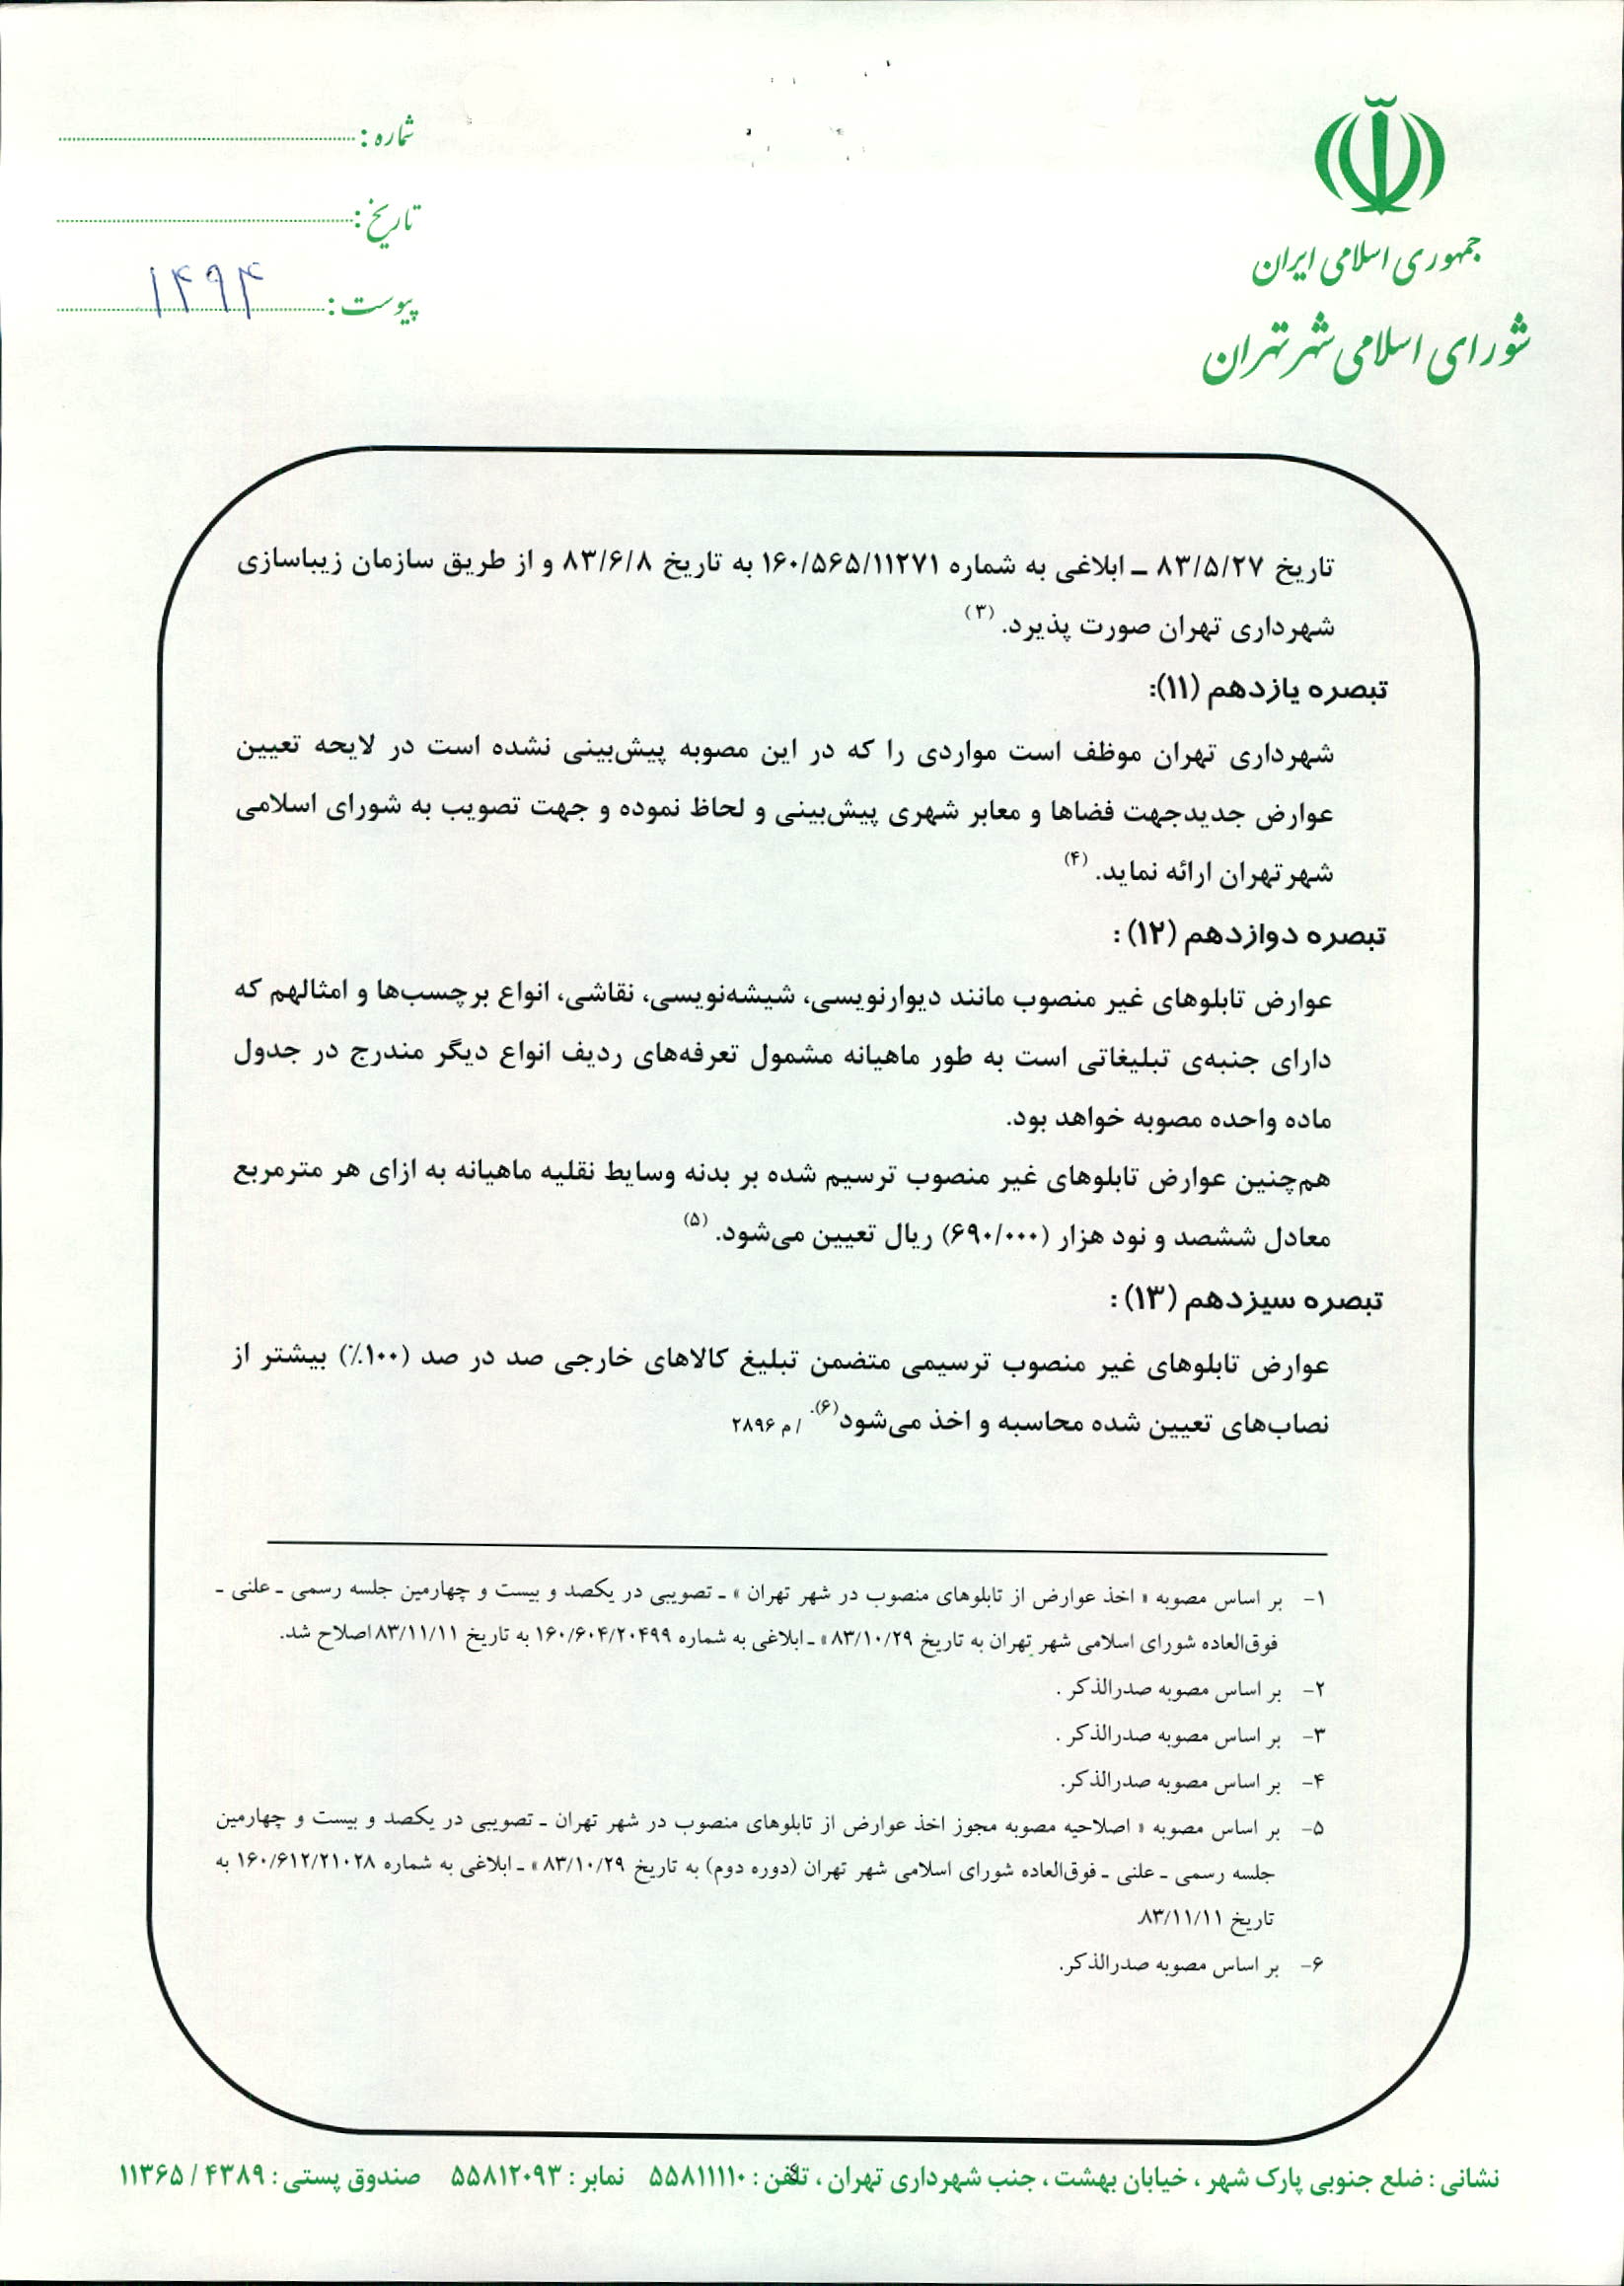 جمهوری اسلامی ایران
شورای اسلامی شهر تهران
شماره :
تاریخ :
پیوست : ۱۴۹۴
تاریخ ۸۳/۵/۲۷ ـ ابلاغی به شماره ۱۶۰/۵۶۵/۱۱۲۷۱ به تاریخ ۸۳/۶/۸ و از طریق سازمان زیباسازی
شهرداری تهران صورت پذیرد. (۳)
تبصره یازدهم (۱۱):
شهرداری تهران موظف است مواردی را که در این مصوبه پیش‌بینی نشده است در لایحه تعیین
عوارض جدیدجهت فضاها و معابر شهری پیش‌بینی و لحاظ نموده و جهت تصویب به شورای اسلامی
شهر تهران ارائه نماید. (۴)
تبصره دوازدهم (۱۲) :
عوارض تابلوهای غیر منصوب مانند دیوارنویسی، شیشه‌نویسی، نقاشی، انواع برچسب‌ها و امثالهم که
دارای جنبه‌ی تبلیغاتی است به طور ماهیانه مشمول تعرفه‌های ردیف انواع دیگر مندرج در جدول
ماده واحده مصوبه خواهد بود.
هم‌چنین عوارض تابلوهای غیر منصوب ترسیم شده بر بدنه وسایط نقلیه ماهیانه به ازای هر مترمربع
معادل ششصد و نود هزار (۶۹۰/۰۰۰) ریال تعیین می‌شود. (۵)
تبصره سیزدهم (۱۳) :
عوارض تابلوهای غیر منصوب ترسیمی متضمن تبلیغ کالاهای خارجی صد در صد (۱۰۰٪) بیشتر از
نصاب‌های تعیین شده محاسبه و اخذ می‌شود(۶). / م ۲۸۹۶
۱- بر اساس مصوبه « اخذ عوارض از تابلوهای منصوب در شهر تهران » ـ تصویبی در یکصد و بیست و چهارمین جلسه رسمی ـ علنی ـ
فوق‌العاده شورای اسلامی شهر تهران به تاریخ ۸۳/۱۰/۲۹ » ـ ابلاغی به شماره ۱۶۰/۶۰۴/۲۰۴۹۹ به تاریخ ۸۳/۱۱/۱۱ اصلاح شد.
۲- بر اساس مصوبه صدرالذکر .
۳- بر اساس مصوبه صدرالذکر .
۴- بر اساس مصوبه صدرالذکر.
۵- بر اساس مصوبه « اصلاحیه مصوبه مجوز اخذ عوارض از تابلوهای منصوب در شهر تهران ـ تصویبی در یکصد و بیست و چهارمین
جلسه رسمی ـ علنی ـ فوق‌العاده شورای اسلامی شهر تهران (دوره دوم) به تاریخ ۸۳/۱۰/۲۹ » ـ ابلاغی به شماره ۱۶۰/۶۱۲/۲۱۰۲۸ به
تاریخ ۸۳/۱۱/۱۱
۶- بر اساس مصوبه صدرالذکر.
نشانی : ضلع جنوبی پارک شهر ، خیابان بهشت ، جنب شهرداری تهران ، تلفن : ۵۵۸۱۱۱۱۰ نمابر : ۵۵۸۱۲۰۹۳ صندوق پستی : ۴۳۸۹ / ۱۱۳۶۵